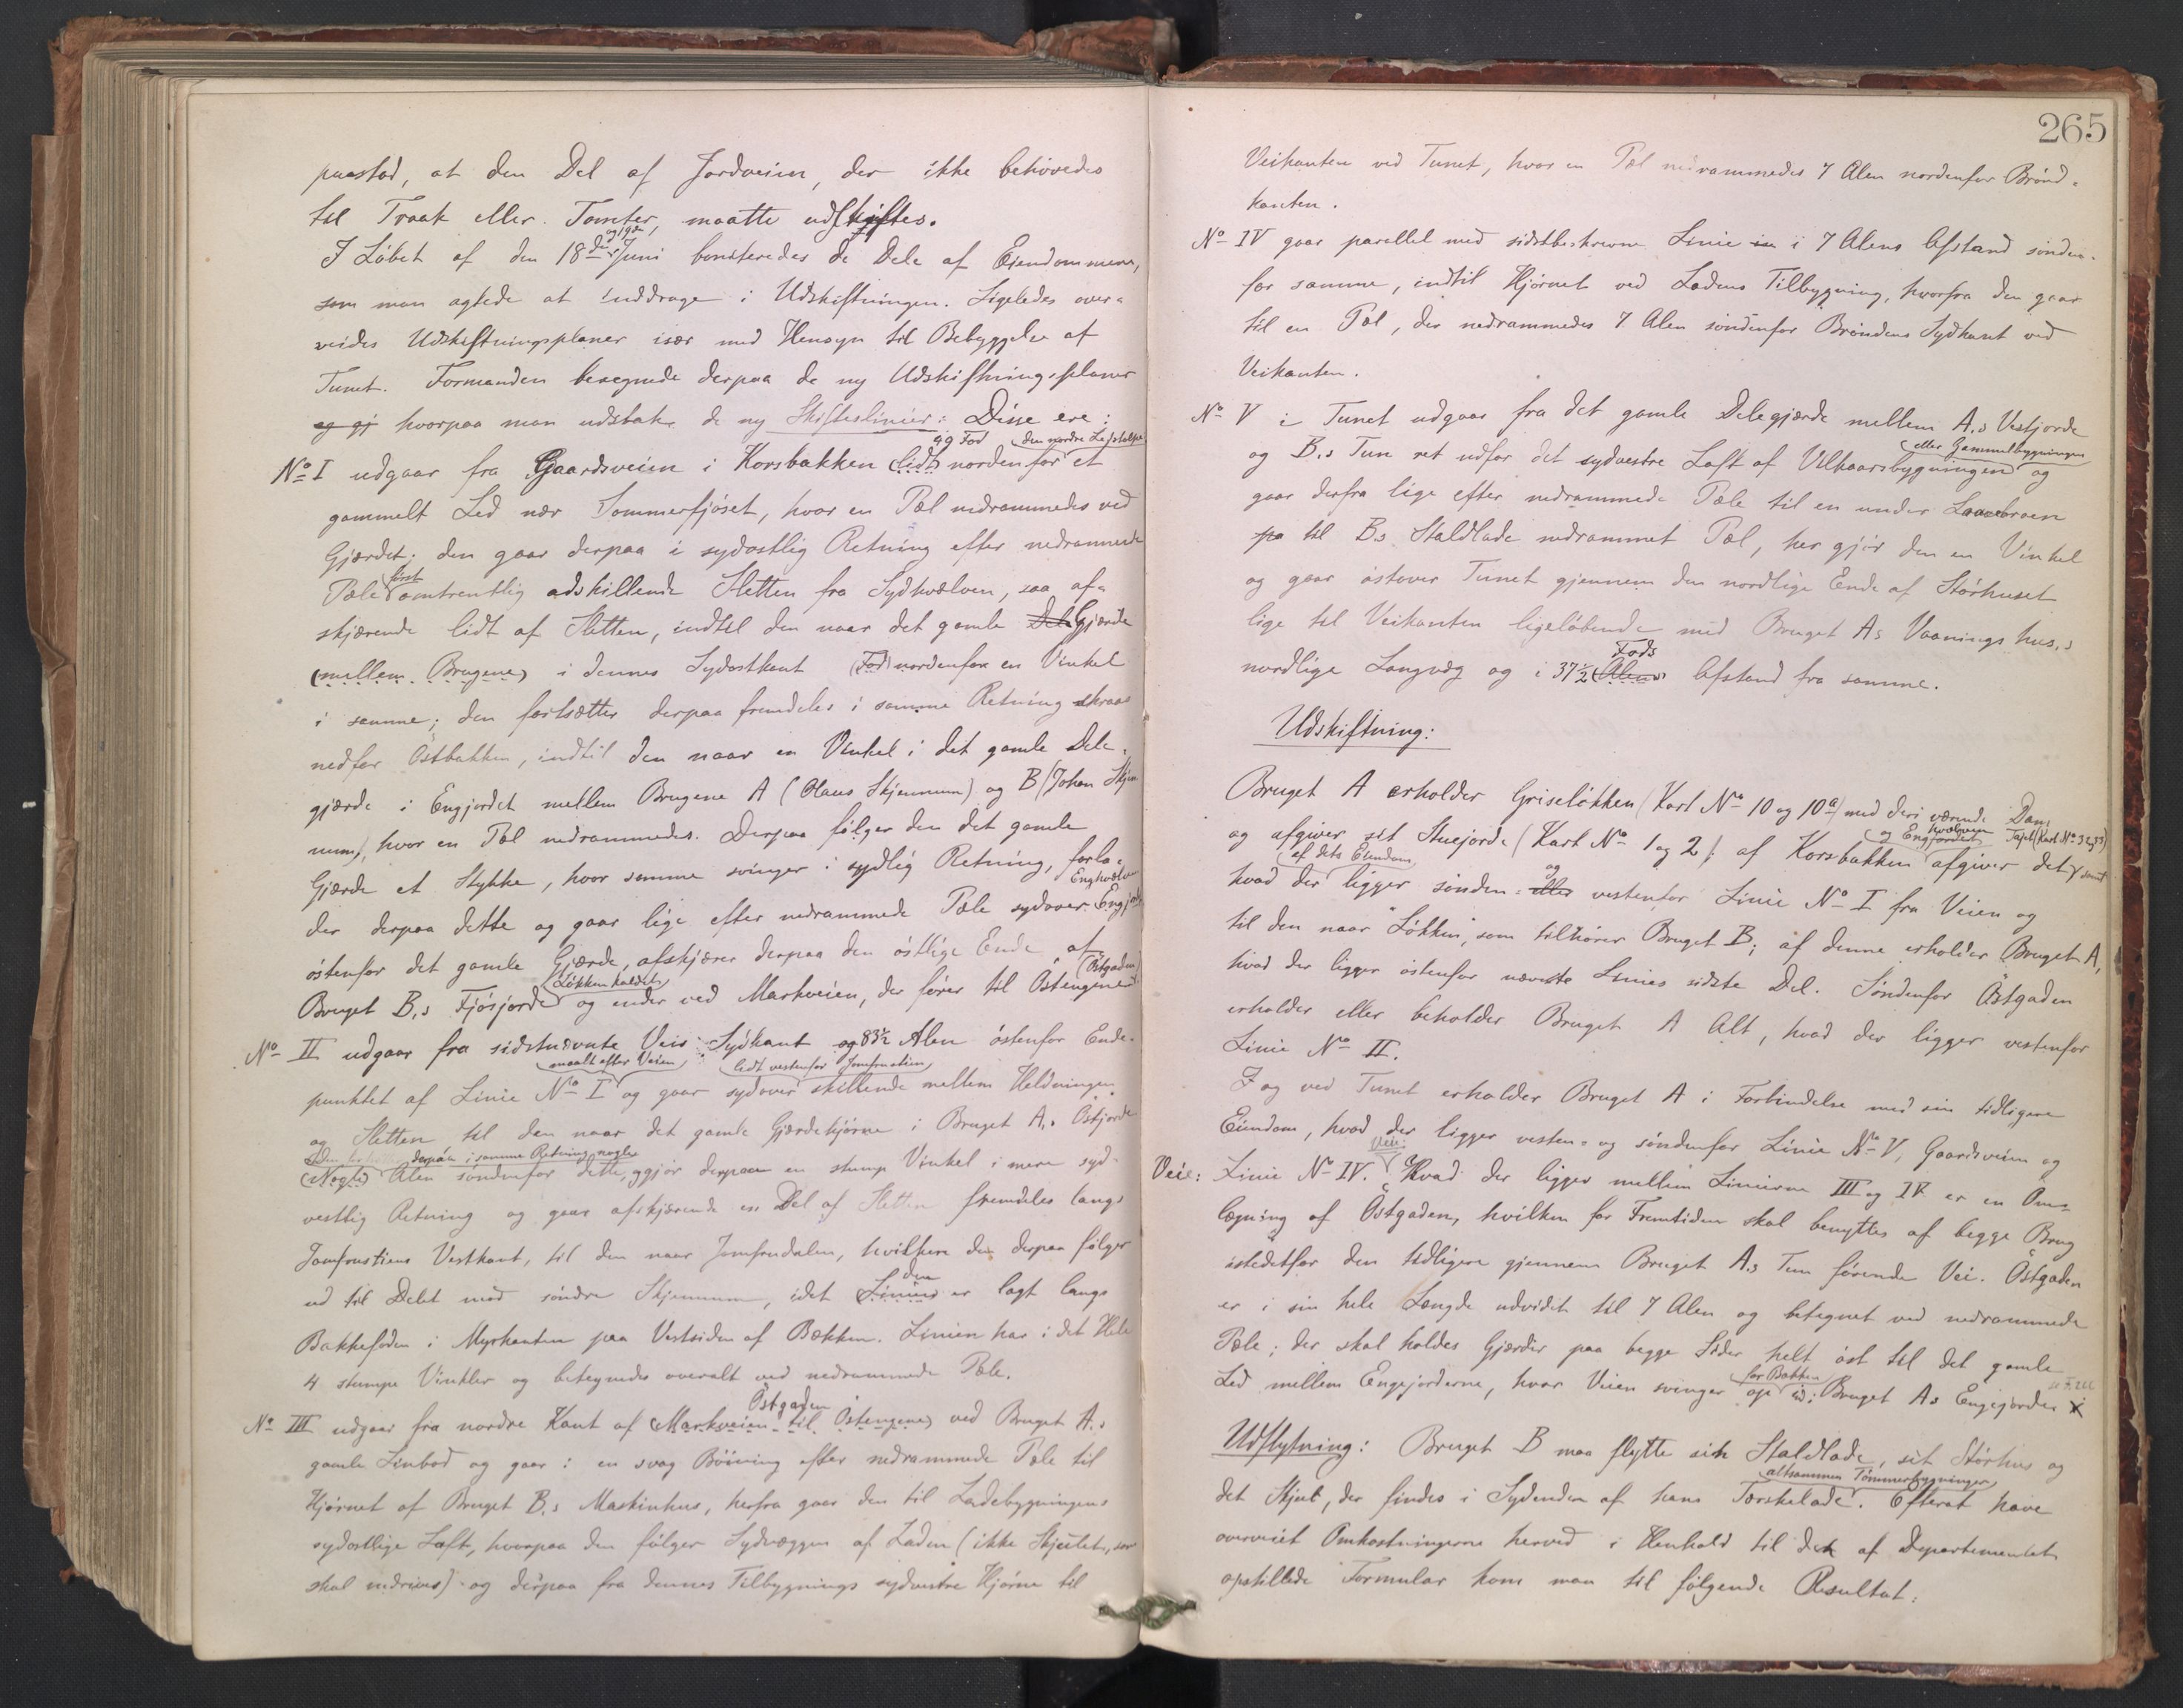 paastod, at den Del af Jordveien, der ikke behövedes
til Traak eller Tomter, maatte udskiftes.
og 19de
I Löbet af den 18de Juni boniteredes de Dele af Eiendommene,
som man agtede at inddrage i Udskiftningen. Ligeledes over-
veides Udskiftningsplaner især med Hensyn til Bebyggelse af
Tunet. Formanden beregnede derpaa de ny Udskiftningsplaner
og gj hvorpaa man udstak de ny Skifteslinier: Disse ere:
99 Fod den nordre Ledstolpe
No I udgaar fra Gaardsveien i Korsbakken (lidt) nordenfor et
gammelt Led nær Sommerfjöset, hvor en Pæl nedrammedes ved
Gjærdet; den gaar derpaa i sydostlig Retning efter nedrammede
först
Pæle omtrentlig adskillende Sletten fra Sydhvælven, saa af-
skjærende lidt af Sletten, indtil den naar det gamle Dele Gjærde
(mellem Brugene) i dennes Sydostkant (Fod) nordenfor en Vinkel
i samme; den fortsætter derpaa fremdeles i samme Retning skraas
nedfor Östbakken, indtil den naar en Vinkel i det gamle Dele-
gjærde i Engjordet mellem Brugene A (Olaus Skjennum) og B (Johan Skjen-
num), hvor en Pæl nedrammedes. Derpaa fölger den det gamle
Gjærde et Stykke, hvor samme svinger i sydlig Retning, forla-
Enghvælven
der derpaa dette og gaar lige efter nedrammede Pæle sydover Engjordet
östenfor det gamle Gjærde, afskjærer derpaa den östlige Ende af
(Lökken kaldet) (Östgaden)
Bruget B,s Fjösjorde og ender ved Markveien, der förer til Östengene
No II udgaar fra sidstnævnte Veis Sydkant og 83½ Alen östenfor Ende-
maalt efter Veien lidt vestenfor Jomfrustien
punktet af Linie No I og gaar sydover skillende mellem Heldningen
og Sletten til den naar det gamle Gjærdehjörne i Bruget A,s Östjorde
derpaa i samme Retning nogle
(Nogle) Alen söndenfor dette, ggjör derpaa en stump Vinkel i mere syd-
vestlig Retning og gaar afskjærende en Del af Sletten fremdeles langs
Jomfrustiens Vestkant, til den naar Jomfrudalen, hvilken den derpaa fölger
den
ud til Delet mod söndre Skjennum, idet (Linien) er lagt langs
Bakkefoden i Myrkanten paa Vestsiden af Bækken. Linien har i det Hele
4 stumpe Vinkler og betegnedes overalt ved nedrammede Pæle.
Östgaden
No III udgaar fra nordre Kant af (Markveien til Östengene) ved Bruget A.s
gamle Linbod og gaar i en svag Böining efter nedrammede Pæle til
Hjörnet af Bruget B,s Maskinhus, herfra gaar den til Ladebygningens
sydostlige Laft, hvorpaa den fölger Sydvæggen af Laden (ikke Skjeulet, som
skal nedrives) og derpaa fra dennes Tilbygnings sydvestre Hjörne til
265
Veikanten ved Tunet, hvor en Pæl nedrammedes 7 Alen nordenfor Brönd-
kanten.
No IV gaar parallel med sidstbeskrevne Linie in i 7 Alens Afstand sönden-
for samme, indtil Hjörnet ved Ladens Tilbygning, hvorfra den gaar
til en Pæl, der nedrammedes 7 Alen söndenfor Bröndens Sydkant ved
Veikanten.
No V i Tunet udgaar fra det gamle Delegjærde mellem A,s Vestjorde
eller Gammelbygningen
og B,s Tun ret udfor det sydvestre Laft af Vilkaarsbygningen og
gaar derfra lige efter nedrammede Pæle til en under Laavebroen
pa til B.s Staldlade nedrammet Pæl, her gjör den en Vinkel
og gaar östover Tunet gjennem den nordlige Ende af Störhuset
lige til Veikanten ligelöbende med Bruget As Vaaningshus,s
Fods
nordlige Langvæg og i 37½ (Alens) Afstand fra samme.
Udskiftning:
Bruget A erholder Griselökken (Kart No 10 og 10a) med deri værende Dam,
og Enghvælven Jordet Tajet (Kart No 32, 33)
og afgiver sit Stuejorde (Kart No 1 og 2). af Korsbakken afgiver det samt
af dets Eiendom og
hvad der ligger sönden- eller vestenfor Linie No I fra Veien og
til den naar "Lökken", som tilhörer Bruget B; af denne erholder Bruget A,
hvad der ligger östenfor nævnte Linies sidste Del. Söndenfor Östgaden
erholder eller beholder Bruget A Alt, hvad der ligger vestenfor
Linie No II.
I og ved Tunet erholder Bruget A i Forbindelse med sin tidligere
Eiendom, hvad der ligger vesten- og söndenfor Linie No V, Gaardsveien og
Veie:
Veie: Linie No IV. Hvad der ligger mellem Linierne III og IV er en Om-
lægning af Östgaden, hvilken for Fremtiden skal benyttes af begge Brug
istedetfor den tidligere gjennem Bruget A.s Tun förende Vei. Östgaden
er i sin hele Længde udvidet til 7 Alen og betegnet ved nedrammede
Pæle; der skal holdes Gjærder paa begge Sider helt öst til det gamle
for Bakken
Led mellem Engejorderne, hvor Veien svinger op i Bruget As Engejorder X
Udflytning: Bruget B maa flytte sin Staldlade, sit Störhus og
altsammen Tömmerbygninger
det Skjul, der findes i Sydenden af hans Tærskelade. Efterat have
overveiet Omkostningerne herved i Henhold til det af Departementet
opstillede Formular kom man til fölgende Resultat: